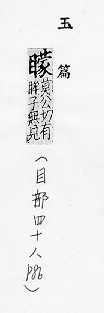 玉篇
矇
莫公切有
眸子無見
(目部四十八 P86)